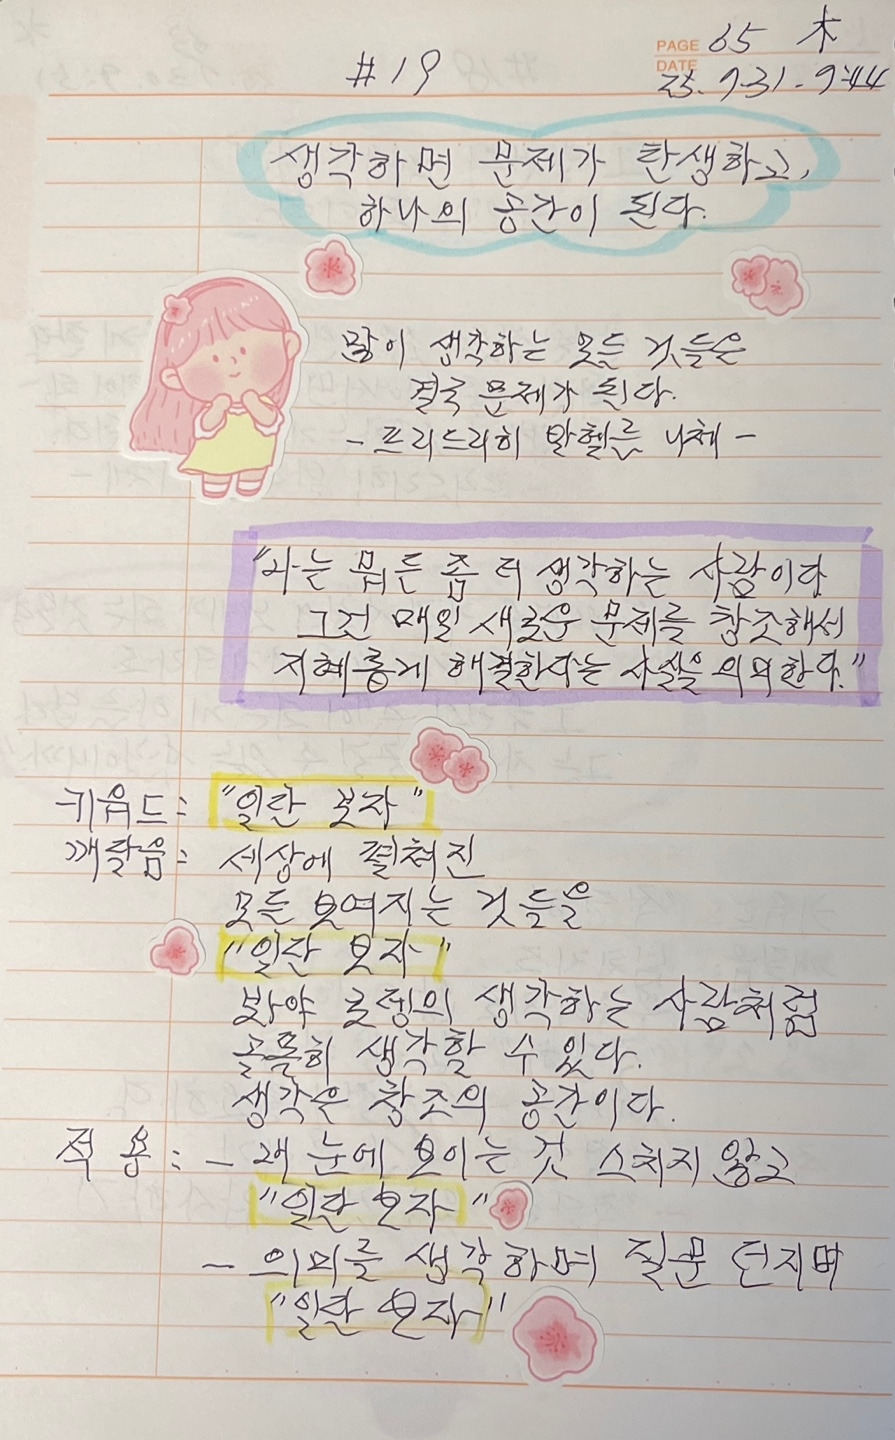 PAGE 65 木
DATE 25. 7. 31. 9:44
#19
생각하면 문제가 탄생하고,
하나의 공간이 된다.
많이 생각하는 모든 것들은
결국 문제가 된다.
- 프리드리히 빌헬름 니체 -
"나는 뭐든 좀 더 생각하는 사람이다
그건 매일 새로운 문제를 창조해서
지혜롭게 해결한다는 사실을 의미한다."
키워드: "일단 보자"
깨달음: 세상에 펼쳐진
모든 보여지는 것들을
"일단 보자"
봐야 로뎅의 생각하는 사람처럼
골몰히 생각할 수 있다.
생각은 창조의 공간이다.
적 용: - 내 눈에 보이는 것 스치지 않고
"일단 보자"
- 의미를 생각하며 질문 던지며
"일단 보자"